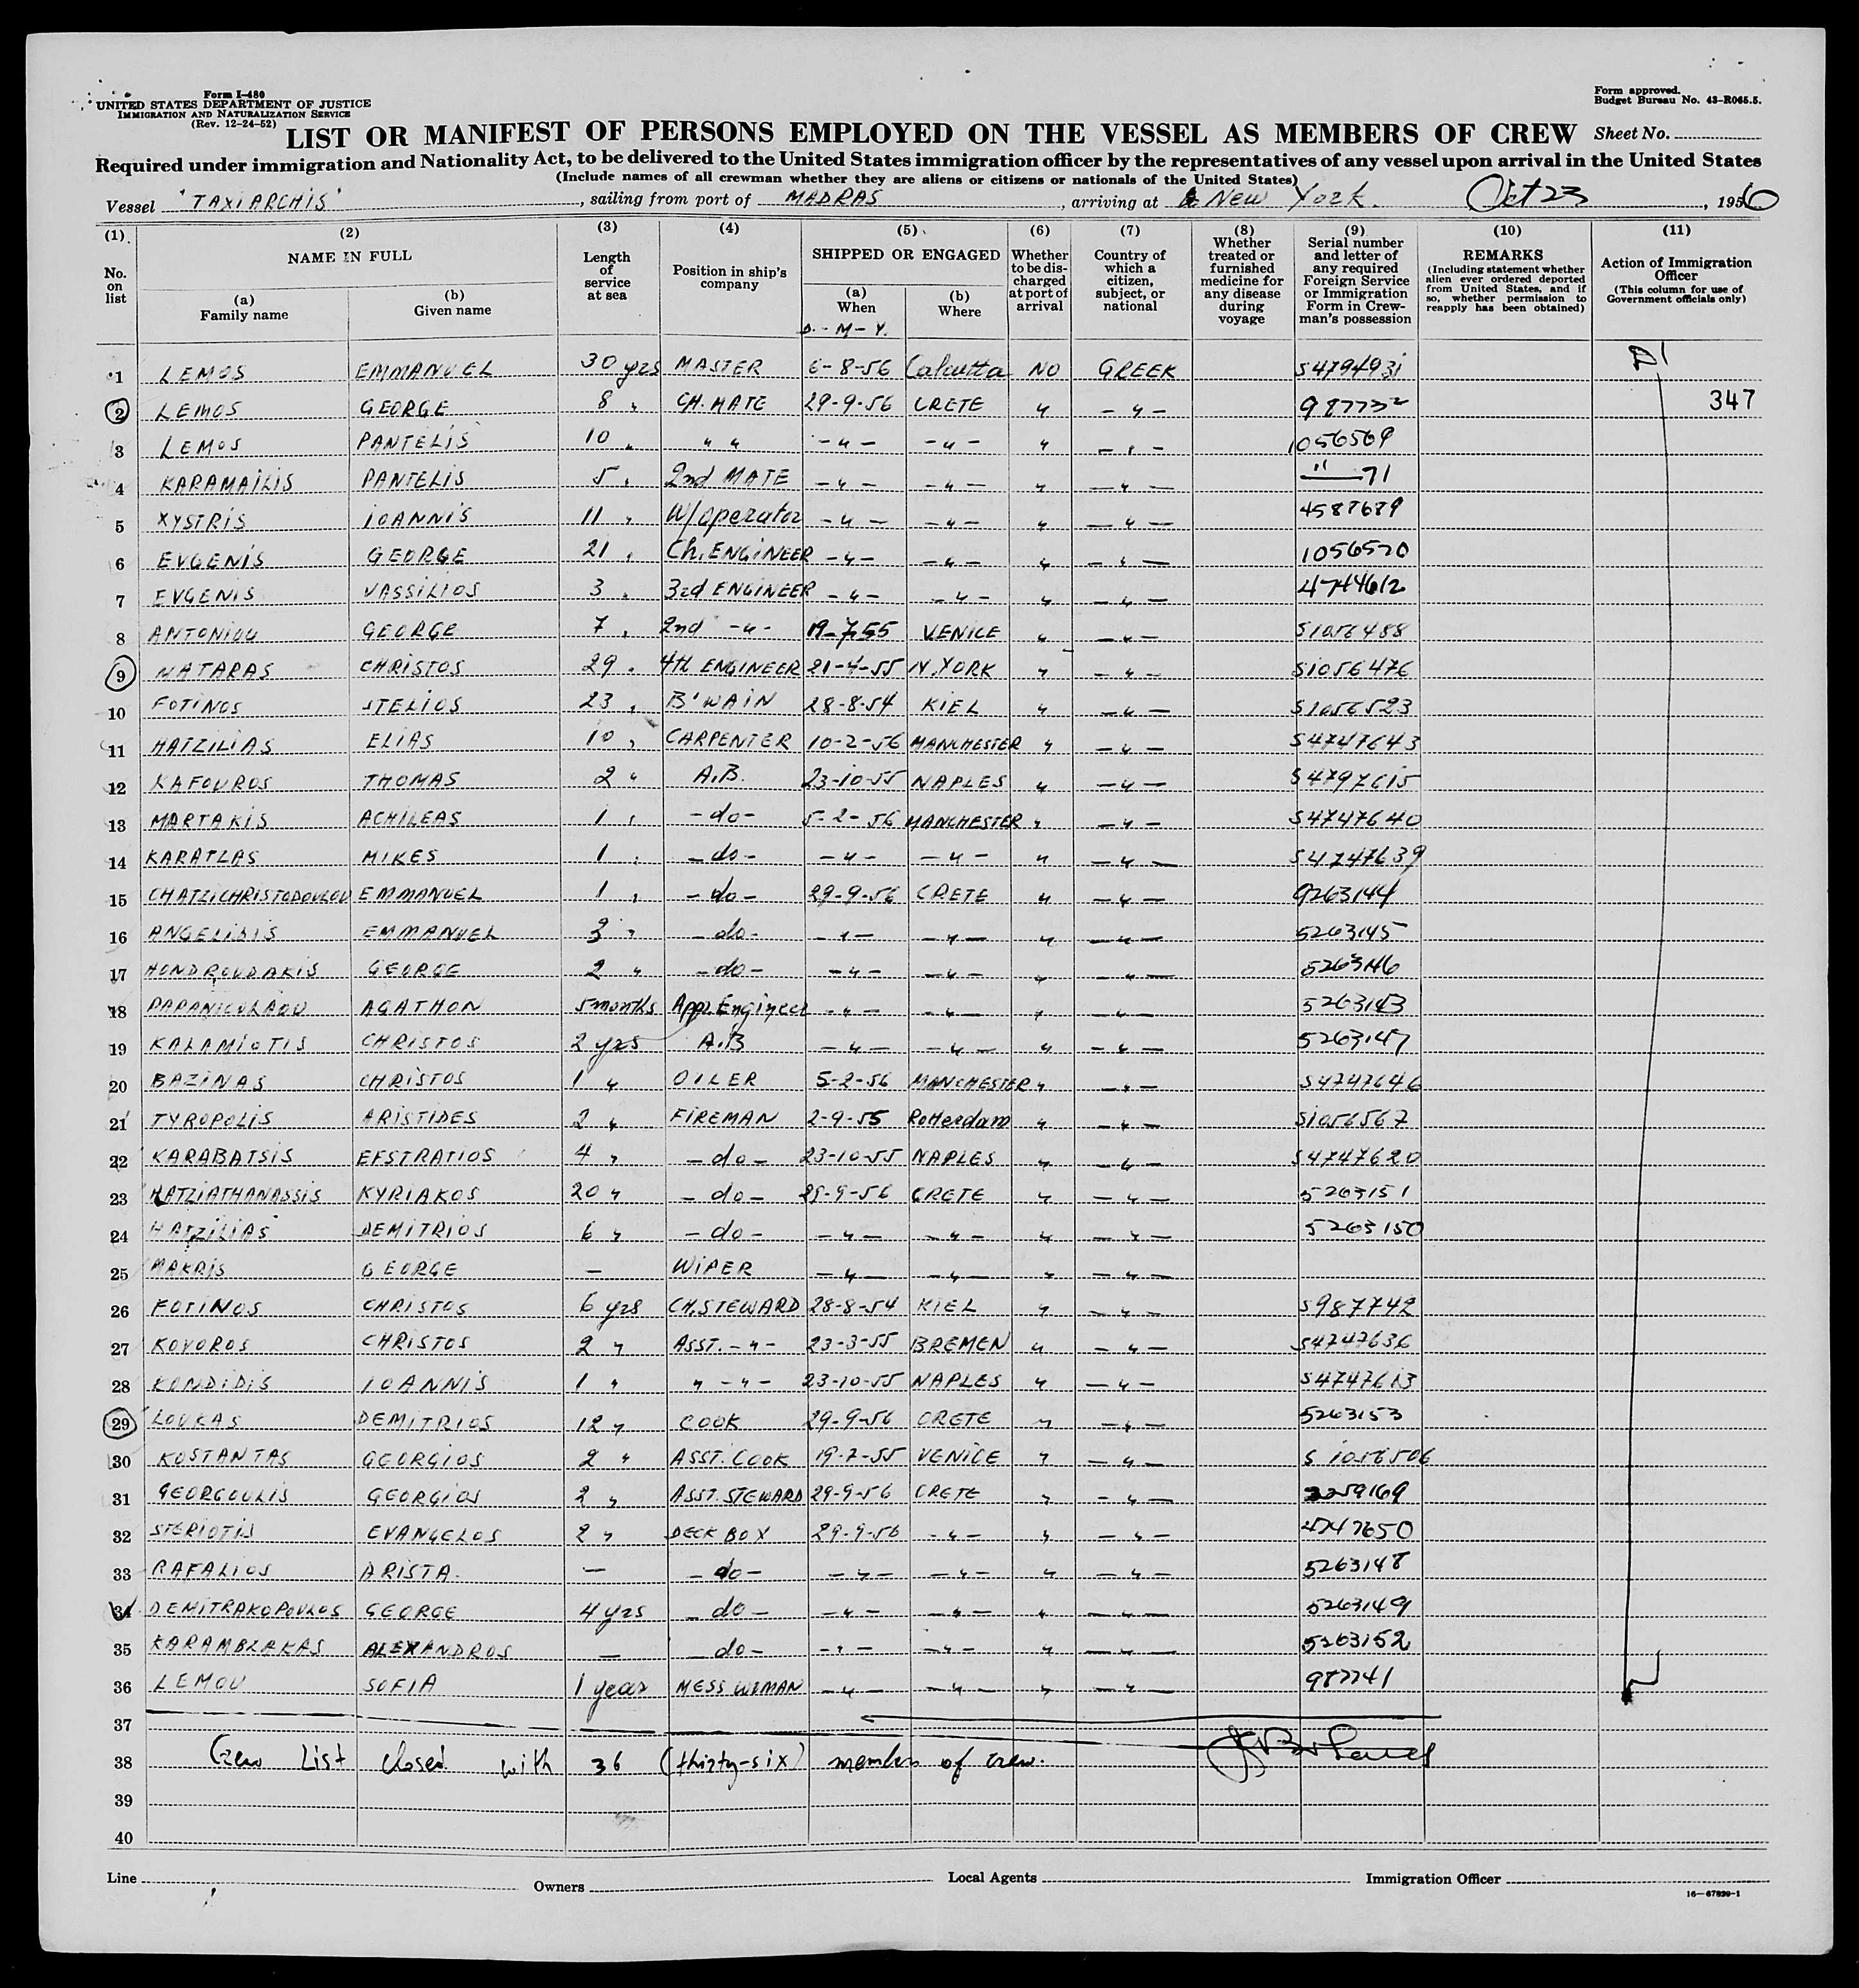 Form I-480
UNITED STATES DEPARTMENT OF JUSTICE
IMMIGRATION AND NATURALIZATION SERVICE
(Rev. 12-24-52)
Form approved.
Budget Bureau No. 43-R065.5.
LIST OR MANIFEST OF PERSONS EMPLOYED ON THE VESSEL AS MEMBERS OF CREW Sheet No.
Required under immigration and Nationality Act, to be delivered to the United States immigration officer by the representatives of any vessel upon arrival in the United States
(Include names of all crewman whether they are aliens or citizens or nationals of the United States)
Vessel "TAXIARCHIS", sailing from port of MADRAS, arriving at New York. Oct 23, 1956
(1) No. on list
(2) NAME IN FULL (a) Family name (b) Given name
(3) Length of service at sea
(4) Position in ship's company
(5) SHIPPED OR ENGAGED (a) When D.-M-Y. (b) Where
(6) Whether to be discharged at port of arrival
(7) Country of which a citizen, subject, or national
(8) Whether treated or furnished medicine for any disease during voyage
(9) Serial number and letter of any required Foreign Service or Immigration Form in Crewman's possession
(10) REMARKS (Including statement whether alien ever ordered deported from United States, and if so, whether permission to reapply has been obtained)
(11) Action of Immigration Officer (This column for use of Government officials only)
1 LEMOS EMMANUEL 30 yrs MASTER 6-8-56 Calcutta NO GREEK S4794931 D1
2 LEMOS GEORGE 8 " CH. MATE 29-9-56 CRETE " - " - 987732 347
3 LEMOS PANTELIS 10 " " " - " - - " - " - " - 1056569
4 KARAMAILIS PANTELIS 5 " 2nd MATE - " - - " - " - " - " 71
5 XYSTRIS IOANNIS 11 " W/operator - " - - " - " - " - 4587689
6 EVGENIS GEORGE 21 " Ch. ENGINEER - " - - " - " - " - 1056570
7 EVGENIS VASSILIOS 3 " 3rd ENGINEER - " - - " - " - " - 4744612
8 ANTONIOU GEORGE 7 " 2nd - " - 19-7-55 VENICE " - " - S1056488
9 MATARAS CHRISTOS 29 " 4th ENGINEER 21-4-55 N.YORK " - " - S1056476
10 FOTINOS STELIOS 23 " B'WAIN 28-8-54 KIEL " - " - S1056523
11 HATZILIAS ELIAS 10 " CARPENTER 10-2-56 MANCHESTER " - " - S4747643
12 KAFOUROS THOMAS 2 " A.B. 23-10-55 NAPLES " - " - S4797615
13 MARTAKIS ACHILEAS 1 " - do - 5-2-56 MANCHESTER " - " - S4747640
14 KARATLAS MIKES 1 " - do - - " - - " - " - " - S4747639
15 CHATZICHRISTODOULOU EMMANUEL 1 " - do - 29-9-56 CRETE " - " - 9263144
16 ANGELIDIS EMMANUEL 3 " - do - - " - - " - " - " - 5263145
17 HONDROUDAKIS GEORGE 2 " - do - - " - - " - " - " - 5263146
18 PAPANICOLAOU AGATHON 5 months App. Engineer - " - - " - " - " - 5263143
19 KALAMIOTIS CHRISTOS 2 yrs A.B - " - - " - " - " - 5263147
20 BAZINAS CHRISTOS 1 " OILER 5-2-56 MANCHESTER " - " - S4747646
21 TYROPOLIS ARISTIDES 2 " FIREMAN 2-9-55 Rotterdam " - " - S1056567
22 KARABATSIS EFSTRATIOS 4 " - do - 23-10-55 NAPLES " - " - S4747620
23 HATZIATHANASSIS KYRIAKOS 20 " - do - 29-9-56 CRETE " - " - 5263151
24 HATZILIAS DEMITRIOS 6 " - do - - " - - " - " - " - 5263150
25 MAKRIS GEORGE - WIPER - " - - " - " - " -
26 FOTINOS CHRISTOS 6 yrs CH. STEWARD 28-8-54 KIEL " - " - S987742
27 KOVOROS CHRISTOS 2 " ASST. - " - 23-3-55 BREMEN " - " - S4747636
28 KANDIDIS IOANNIS 1 " " - " - 23-10-55 NAPLES " - " - S4747613
29 LOUKAS DEMITRIOS 12 " COOK 29-9-56 CRETE " - " - 5263153
30 KOSTANTAS GEORGIOS 2 " ASST. COOK 19-7-55 VENICE " - " - S 1056506
31 GEORGOULIS GEORGIOS 2 " ASST. STEWARD 29-9-56 CRETE " - " - 2259169
32 STERIOTIS EVANGELOS 2 " DECK BOX 29-9-56 - " - " - " - 4747650
33 RAFALIOS ARISTA. - - do - - " - - " - " - " - 5263148
34 DEMITRAKOPOULOS GEORGE 4 yrs - do - - " - - " - " - " - 5263149
35 KARAMBLAKAS ALEXANDROS - - do - - " - - " - " - " - 5263152
36 LEMOU SOFIA 1 year MESS WOMAN - " - - " - " - " - 987741
37
38 Crew List closed with 36 (thirty-six) members of crew.
39
40
Line Owners Local Agents Immigration Officer
16-67820-1